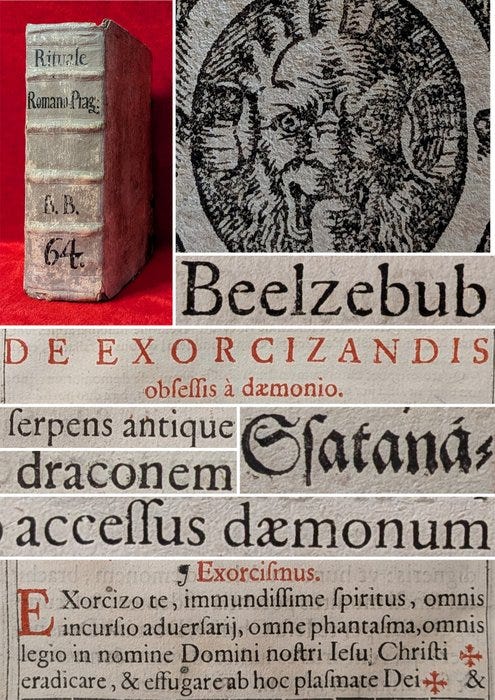 Rituale
Romano Prag:
B. B.
64.
Beelzebub
DE EXORCIZANDIS
obſeſſis à dæmonio.
ſerpens antique
Sſataná⸗
draconem
acceſſus dæmonum
Exorciſmus.
EXorcizo te, immundiſſime ſpiritus, omnis
incurſio aduerſarij, omne phantaſma, omnis
legio in nomine Domini noſtri Ieſu Chriſti ✠
eradicare, & effugare ab hoc plaſmate Dei ✠ &